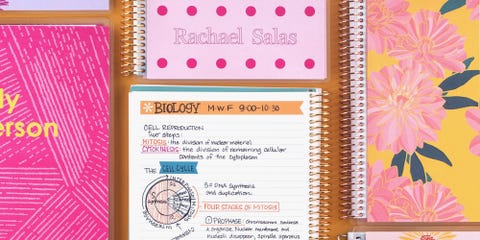 Rachael Salas
ly
erson
BIOLOGY M-W-F 9:00-10:30
CELL REPRODUCTION
Two steps:
MITOSIS: the division of nuclear material
CYTOKINESIS: the division of remaining cellular
contents of the cytoplasm
THE CELL CYCLE
S= DNA Synthesis
and duplication.
FOUR STAGES OF MITOSIS
① PROPHASE: Chromosomes condense
& organize. Nuclear membrane and
nucleoli disappear. Spindle apparatus